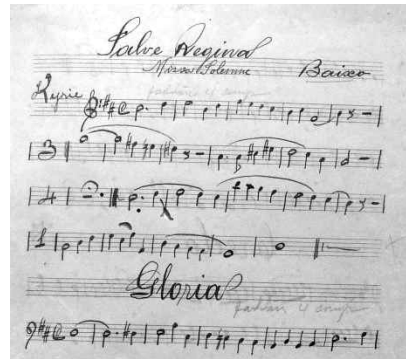 Salve Regina
Missa Solemne Baixo
Kyrie
3
4
1
Gloria